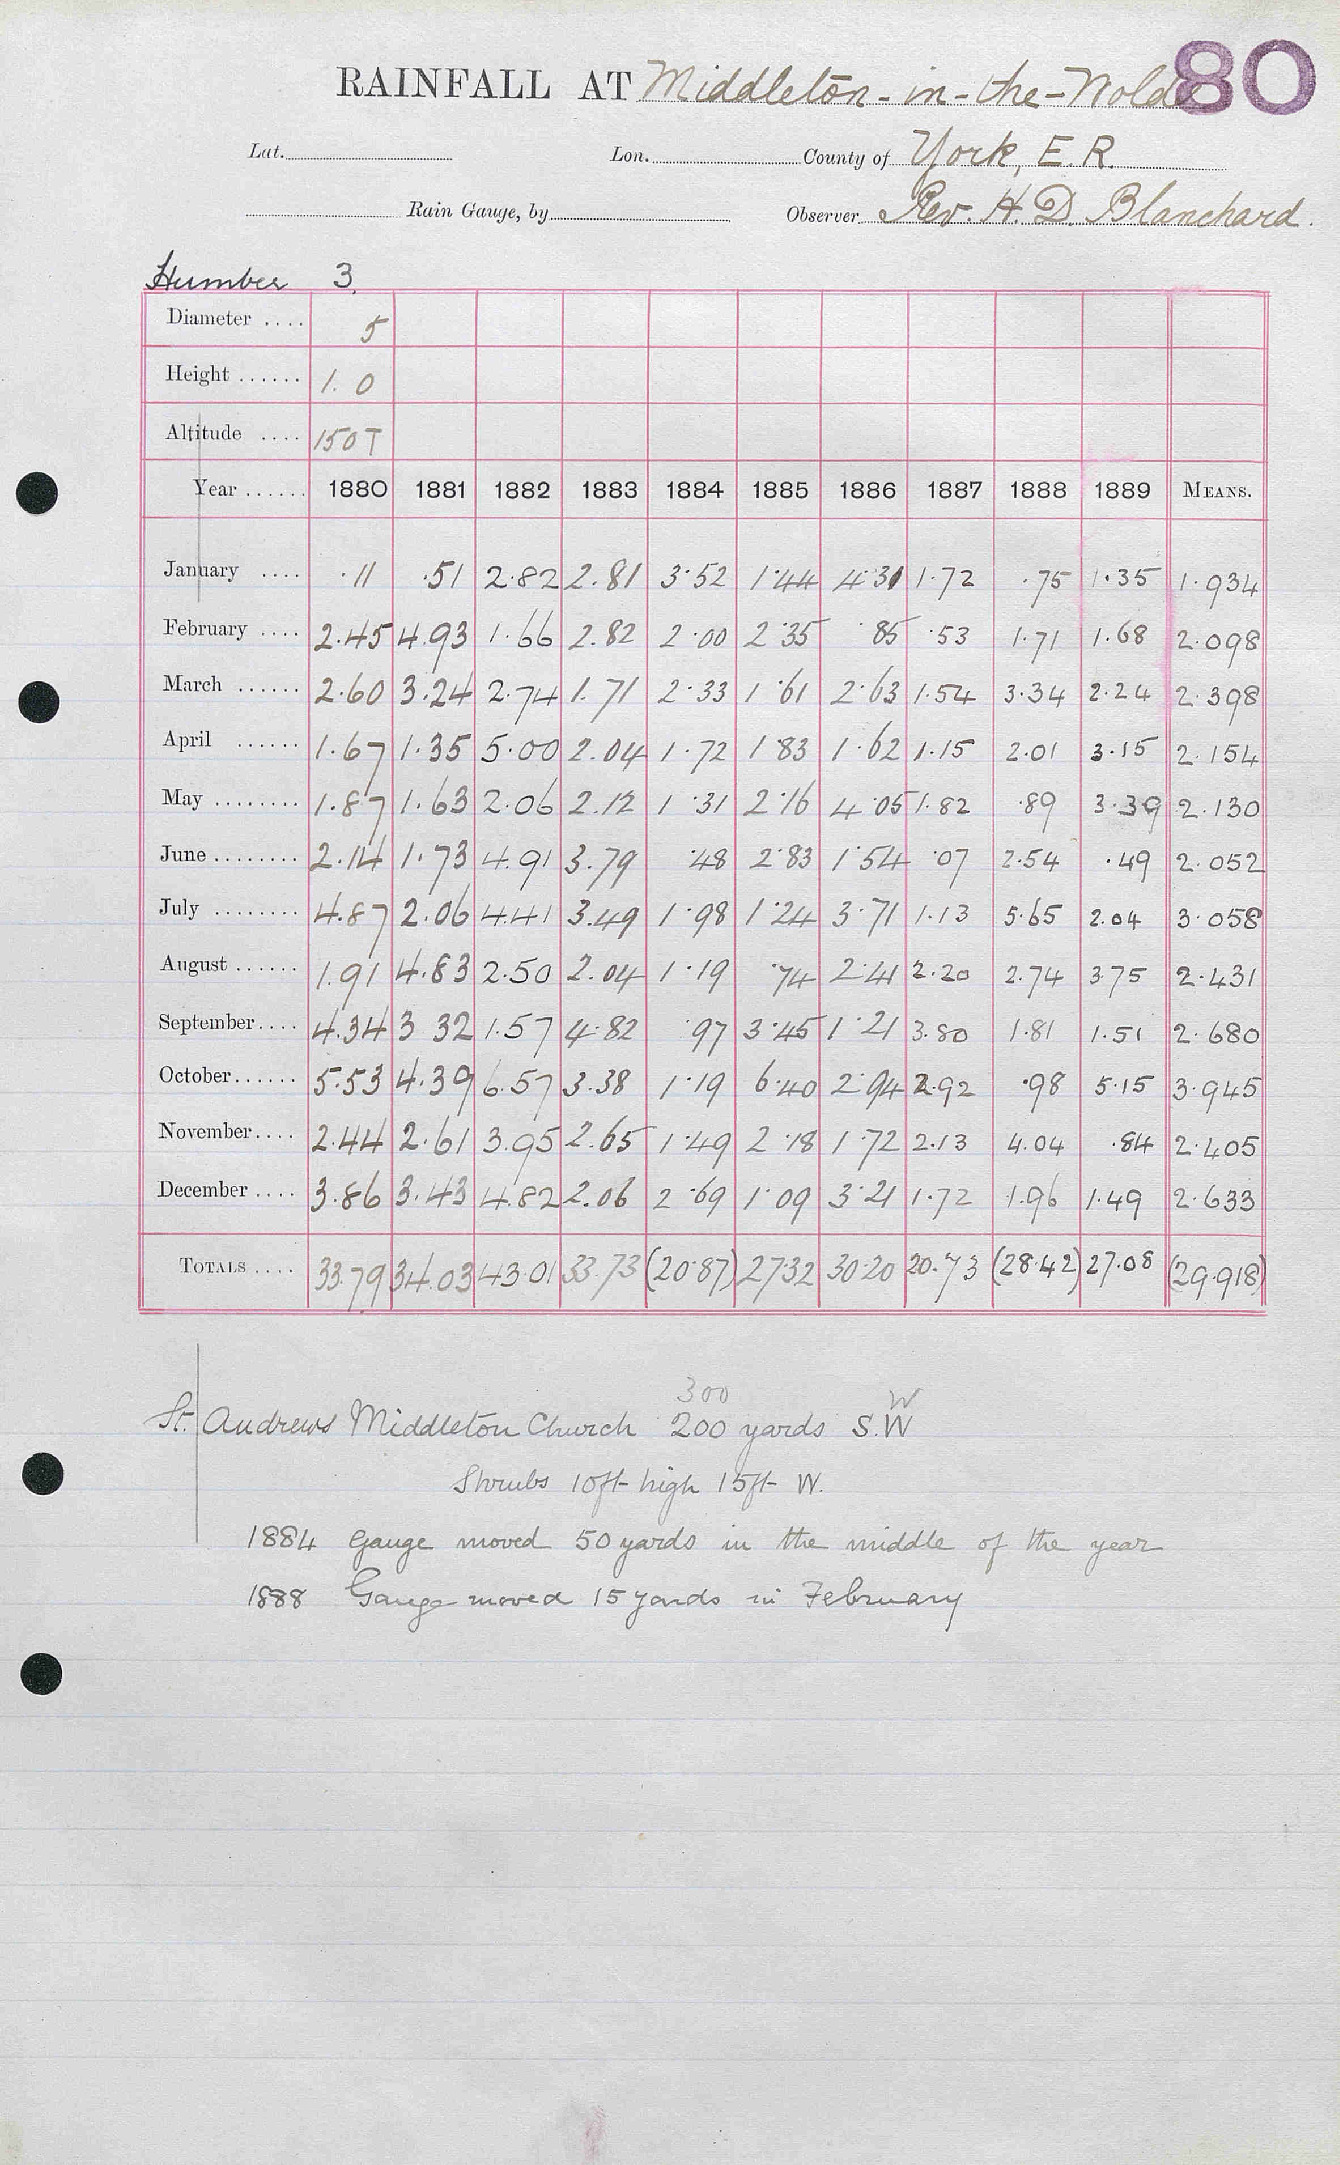 80
RAINFALL AT Middleton-in-the-Wolds
Lat. Lon. County of York, E.R.
Rain Gauge, by Observer Rev. H. D. Blanchard.
Humber 3.
Diameter .... 5
Height ...... 1. 0
Altitude .... 150T
Year ...... 1880 1881 1882 1883 1884 1885 1886 1887 1888 1889 MEANS.
January .... .11 .51 2.82 2.81 3.52 1.44 4.31 1.72 .75 1.35 1.934
February .... 2.45 4.93 1.66 2.82 2.00 2.35 85 .53 1.71 1.68 2.098
March ...... 2.60 3.24 2.74 1.71 2.33 1.61 2.63 1.54 3.34 2.24 2.398
April ...... 1.67 1.35 5.00 2.04 1.72 1.83 1.62 1.15 2.01 3.15 2.154
May ........ 1.87 1.63 2.06 2.12 1.31 2.16 4.05 1.82 .89 3.39 2.130
June ........ 2.14 1.73 4.91 3.79 .48 2.83 1.54 .07 2.54 .49 2.052
July ........ 4.87 2.06 4.41 3.49 1.98 1.24 3.71 1.13 5.65 2.04 3.058
August ...... 1.91 4.83 2.50 2.04 1.19 .74 2.41 2.20 2.74 3.75 2.431
September.... 4.34 3 32 1.57 4.82 .97 3.45 1.21 3.80 1.81 1.51 2.680
October...... 5.53 4.39 6.57 3.38 1.19 6.40 2.94 2.92 .98 5.15 3.945
November.... 2.44 2.61 3.95 2.65 1.49 2.18 1.72 2.13 4.04 .84 2.405
December .... 3.86 3.43 4.82 2.06 2.69 1.09 3.21 1.72 1.96 1.49 2.633
TOTALS .... 33.79 34.03 43.01 33.73 (20.87) 27.32 30.20 20.73 (28.42) 27.08 (29.918)
300 W
St. Andrews Middleton Church 200 yards S.W
Shrubs 10ft high 15ft W.
1884 gauge moved 50 yards in the middle of the year
1888 Gauge moved 15 yards in February